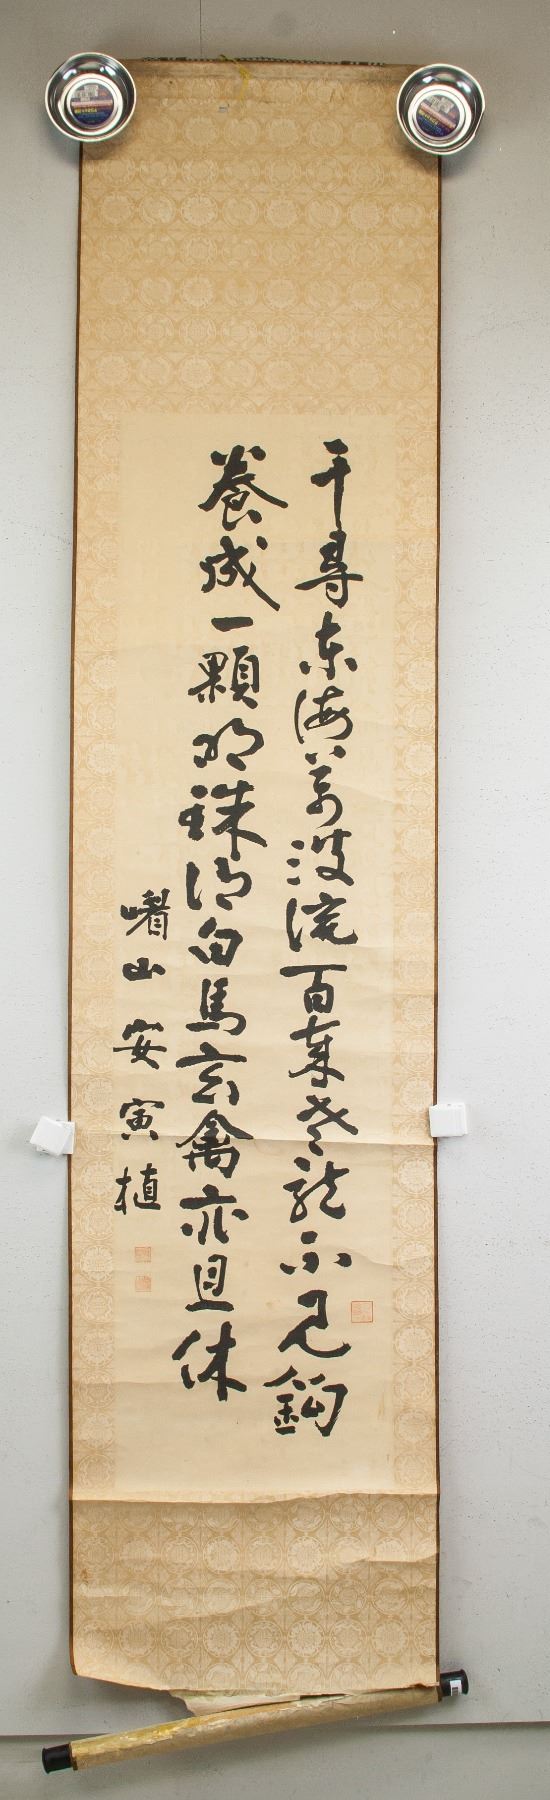 千尋東海万波流百乗老龍不見鈎
養成一顆明珠㣲白馬玄禽亦且休
嵴山安寅植